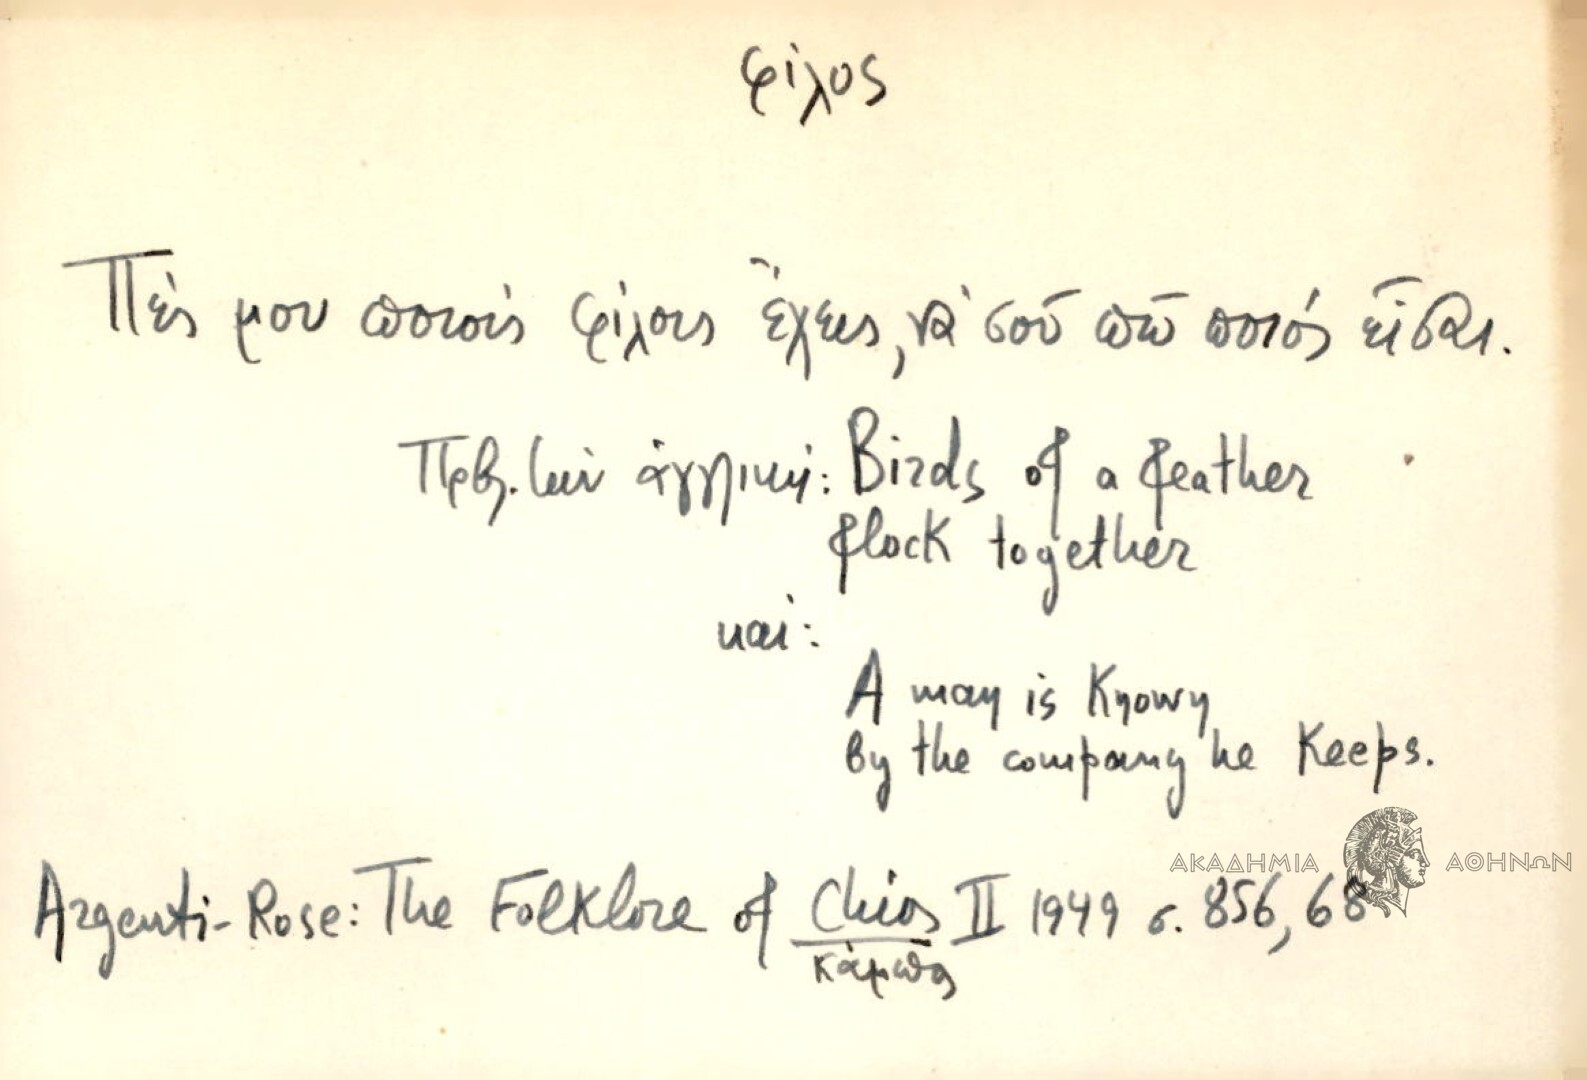 φίλος
Πές μου ποιούς φίλους ἔχεις, νὰ σοῦ πῶ ποιός εἶσαι.
Πρβλ. τὴν ἀγγλική: Birds of a feather
flock together
καί:
A man is known
by the company he keeps.
ΑΚΑΔΗΜΙΑ ΑΘΗΝΩΝ
Argenti-Rose: The Folklore of Chios II 1949 σ. 856, 68
Κάμπος